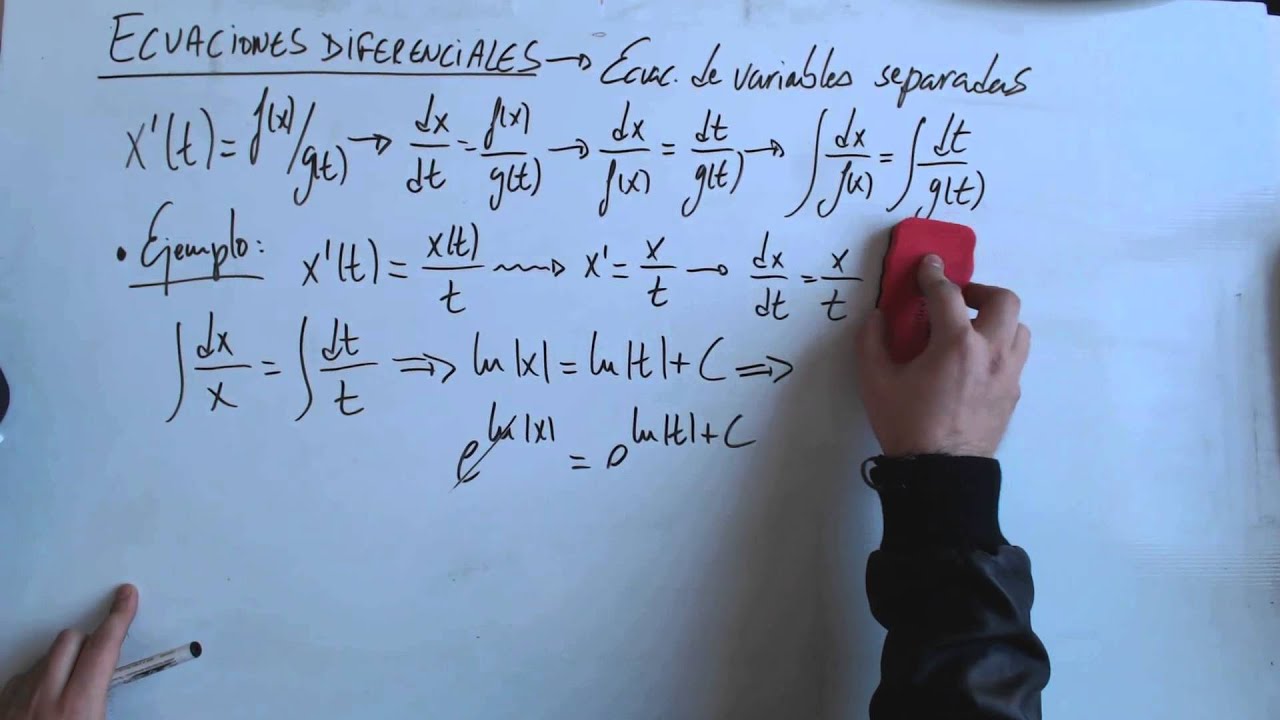 ECUACIONES DIFERENCIALES → Ecuac. de variables separadas
x'(t) = f(x)/g(t) → dx/dt = f(x)/g(t) → dx/f(x) = dt/g(t) → ∫ dx/f(x) = ∫ dt/g(t)
• Ejemplo: x'(t) = x(t)/t ⟿ x' = x/t → dx/dt = x/t
∫ dx/x = ∫ dt/t ⇒ ln|x| = ln|t| + C ⇒
e^ln|x| = e^ln|t|+C